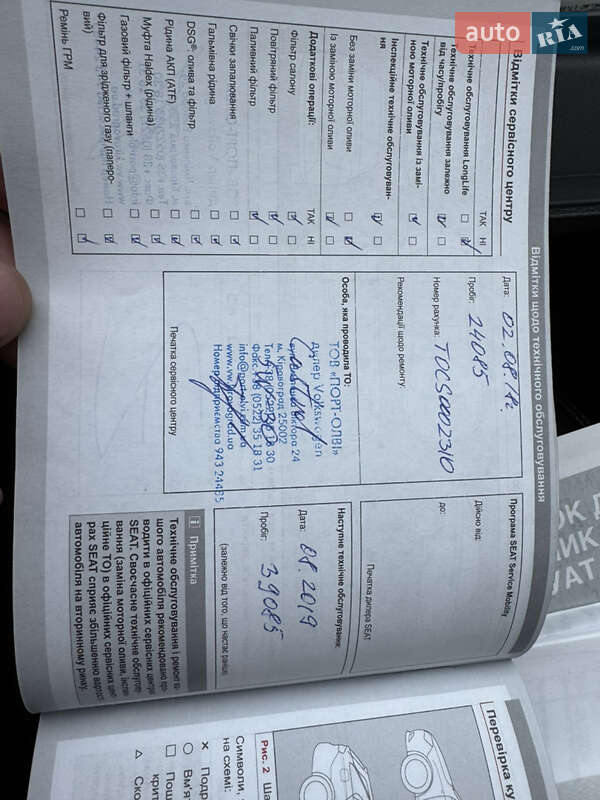 auto RIA .com
Відмітки щодо технічного обслуговування
Відмітки сервісного центру
ТАК НІ
Технічне обслуговування LongLife
Технічне обслуговування залежно
від часу/пробігу
Технічне обслуговування із замі-
ною моторної оливи
Інспекційне технічне обслуговуван-
ня
Без заміни моторної оливи
Із заміною моторної оливи
Додаткові операції: ТАК НІ
Фільтр салону
Повітряний фільтр
Паливний фільтр
Свічки запалювання
Гальмівна рідина
DSG®: олива та фільтр
Рідина АКП (ATF)
Муфта Haldex (рідина)
Газовий фільтр + шланги
Фільтр для зрідженого газу (паперо-
вий)
Ремінь ГРМ
Дата: 02.08.18г
Пробіг: 24085
Номер рахунка: TOCS0002310
Рекомендації щодо ремонту:
Особа, яка проводила ТО:
ТОВ «ПОРТ-ОЛВІ»
дилер Volkswagen
м. Кіровоград 25002
Факс +38 (0522) 35 18 31
www.vw-kirovograd.ua
Номер підприємства 943 24485
Печатка сервісного центру
Програма SEAT Service Mobility
Дійсно від:
до:
Печатка дилера SEAT
Наступне технічне обслуговування:
Дата: 08.2019
Пробіг: 39085
(залежно від того, що настає раніше)
i Примітка
Технічне обслуговування і ремонт
шого автомобіля рекомендовано про-
водити в офіційних сервісних центрах
SEAT. Своєчасне технічне обслугову-
вання (заміна моторної оливи,
ційне ТО) в офіційних сервісних цент-
рах SEAT сприяє збільшенню вартості
автомобіля на вторинному ринку.
Перевірка ку
Рис. 2
Символи,
на схемі:
× Подр
○ Вм'я
□ Пош
крит
△ Ско